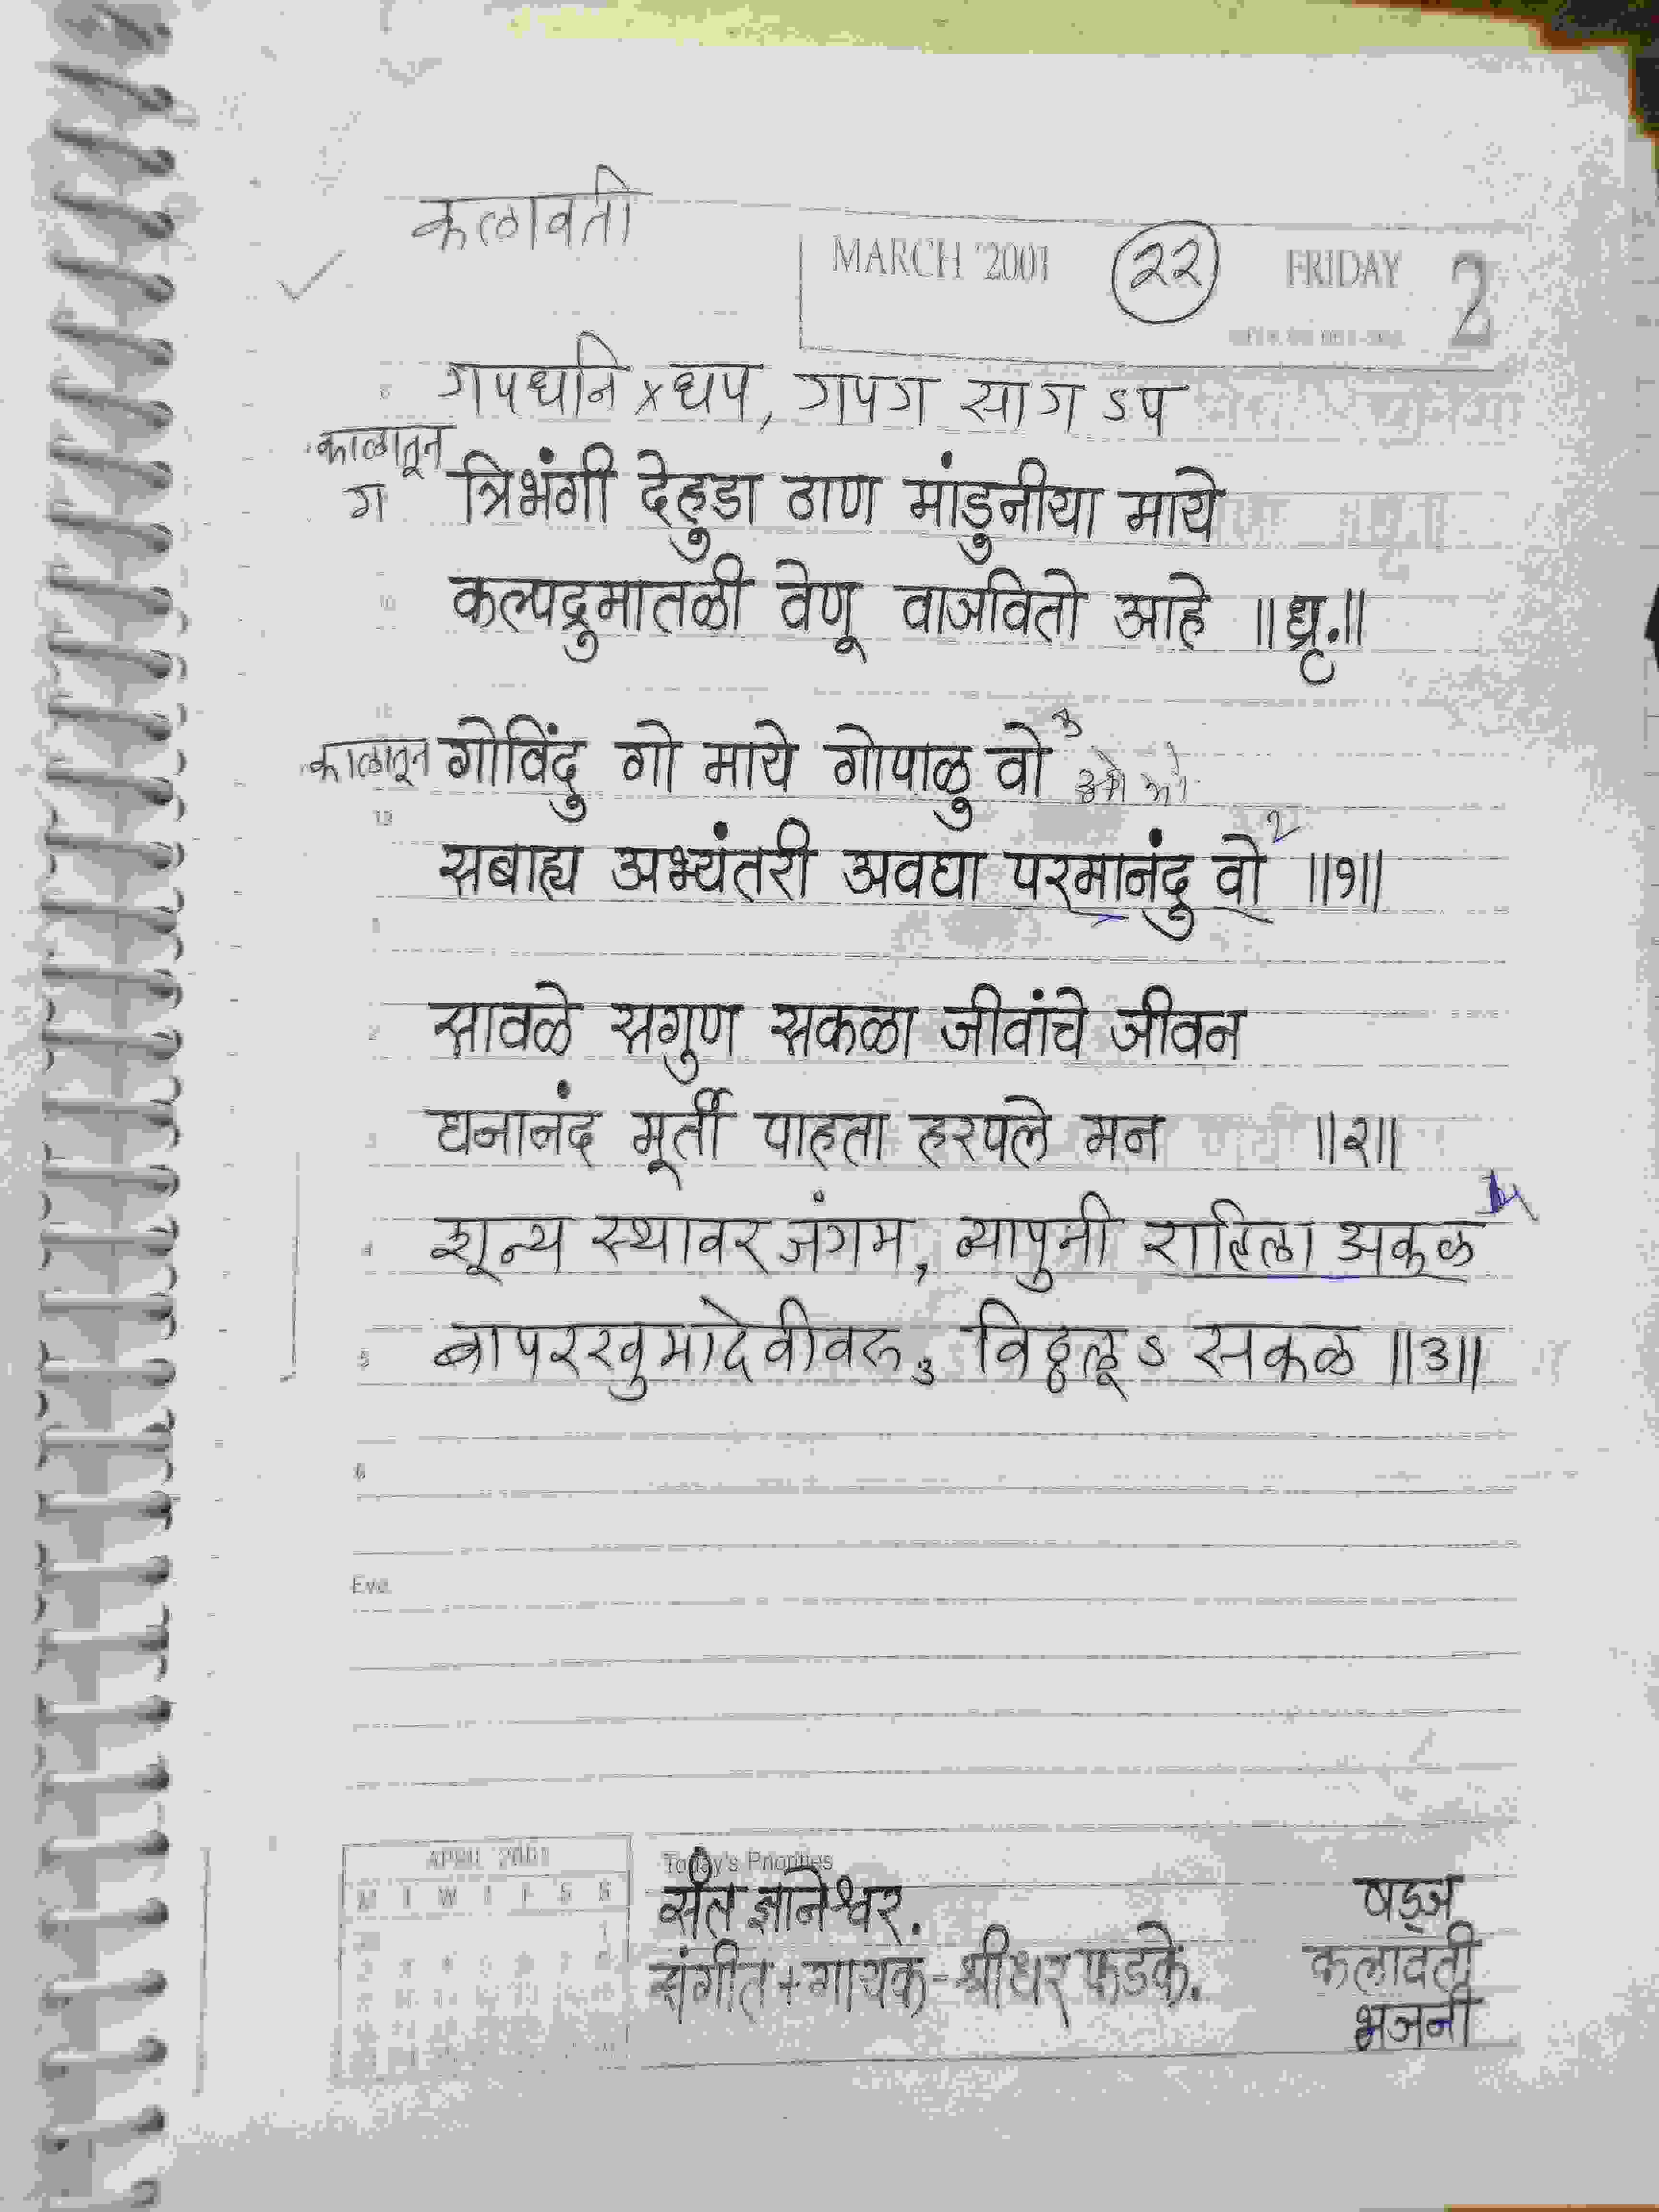 कलावती
MARCH '2001 (२२) FRIDAY 2
गपधनि x धप, गपग साग ऽप
काळातून
ग त्रिभंगी देहुडा ठाण मांडुनीया माये
कल्पद्रुमातळी वेणू वाजवितो आहे ॥धृ.॥
काळातून गोविंदु गो माये गोपाळु वो ३
सबाह्य अभ्यंतरी अवघा परमानंदु वो २ ॥१॥
सावळे सगुण सकळा जीवांचे जीवन
घनानंद मूर्ती पाहता हरपले मन ॥२॥
शून्य स्थावर जंगम, व्यापुनी राहिला अकळ
बापरखुमादेवीवरु, विठ्ठलू ऽ सकळ ॥३॥
Eve.
APRIL 2001
M T W T F S S
Today's Priorities
संत ज्ञानेश्वर.
संगीत + गायक - श्रीधर फडके.
षड्ज
कलावती
भजनी